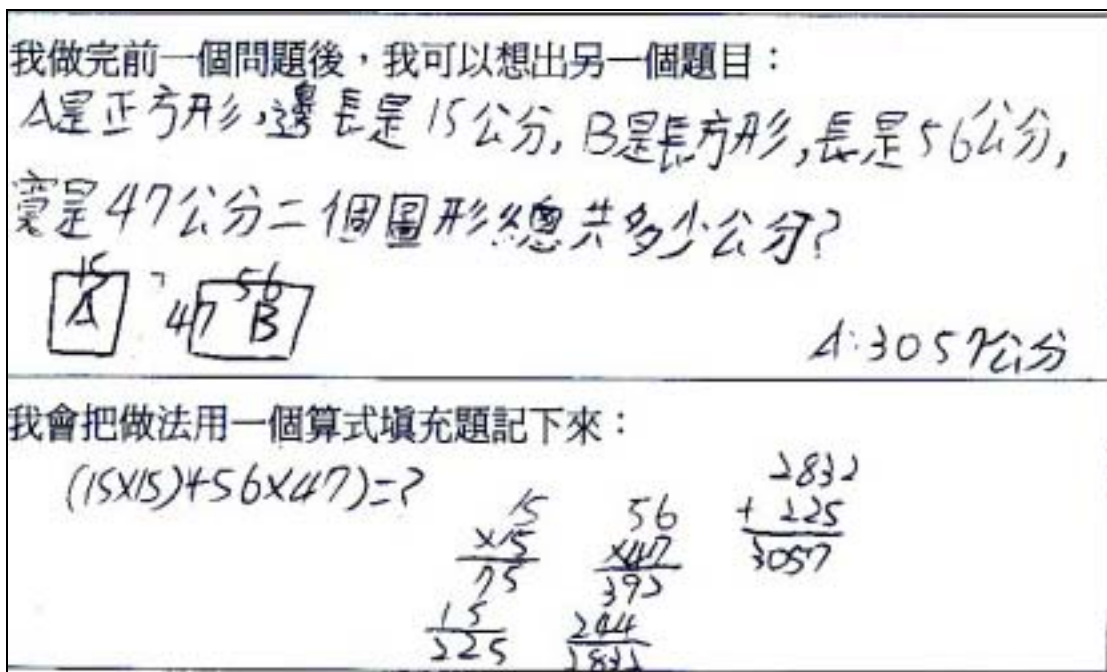 我做完前一個問題後，我可以想出另一個題目：
A是正方形，邊長是15公分，B是長方形，長是56公分，
寬是47公分二個圖形總共多少公分？
15 56
A 47 B
A:3057公分
我會把做法用一個算式填充題記下來：
(15×15)+56×47)=?
15
×15
75
15
225
56
×47
392
244
2832
2832
+ 225
3057